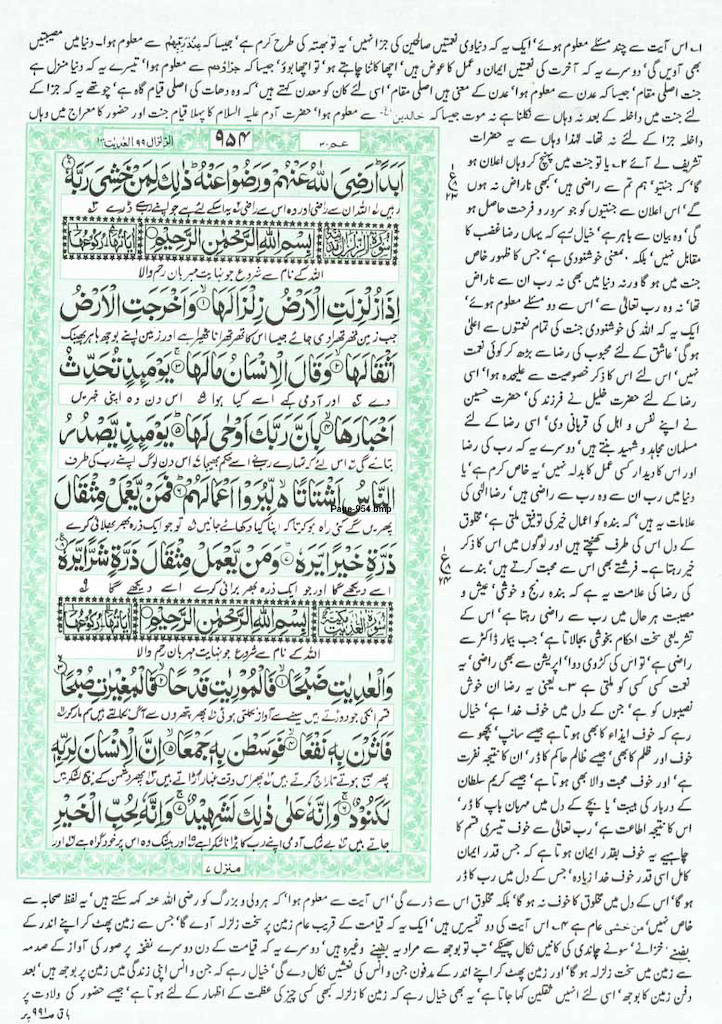 ۱۔ اس آیت سے چند مسئلے معلوم ہوئے' ایک یہ کہ دنیاوی نعمتیں صالحین کی جزا نہیں' یہ تو بھتہ کی طرح کرم ہے' جیسا کہ عند ربہم سے معلوم ہوا۔ دنیا میں مصیبتیں
بھی آویں گی' دوسرے یہ کہ آخرت کی نعمتیں ایمان و عمل کا عوض ہیں' اچھا کاٹنا چاہتے ہو' تو اچھا بوؤ' جیسا کہ جزاؤہم سے معلوم ہوا' تیسرے یہ کہ دنیا منزل ہے
جنت اصلی مقام' جیسا کہ عدن سے معلوم ہوا' عدن کے معنی ہیں اصلی مقام' اسی لئے کان کو معدن کہتے ہیں' کہ وہ دھات کی اصلی قیام گاہ ہے' چوتھے یہ کہ جزا کے
لئے جنت میں داخلہ کے بعد نہ وہاں سے نکلنا ہے نہ موت جیسا کہ خالدین سے معلوم ہوا' حضرت آدم علیہ السلام کا پہلا قیام جنت اور حضور کا معراج میں وہاں
داخلہ جزا کے لئے نہ تھا۔ لہٰذا وہاں سے یہ حضرات
تشریف لے آئے ۲۔ یا تو جنت میں پہنچ کر وہاں اعلان ہو
گا' کہ جنتیو' ہم تم سے راضی ہیں' کبھی ناراض نہ ہوں
گے' اس اعلان سے جنتیوں کو جو سرور و فرحت حاصل ہو
گی' وہ بیان سے باہر ہے' خیال رہے کہ یہاں رضا غضب کا
مقابل نہیں' بلکہ بمعنی خوشنودی ہے' جس کا ظہور خاص
جنت میں ہو گا ورنہ دنیا میں بھی نہ رب ان سے ناراض
تھا' نہ وہ رب تعالیٰ سے' اس سے دو مسئلے معلوم ہوئے'
ایک یہ کہ اللہ کی خوشنودی جنت کی تمام نعمتوں سے اعلیٰ
ہوگی' عاشق کے لئے محبوب کی رضا سے بڑھ کر کوئی نعمت
نہیں' اس لئے اس کا ذکر خصوصیت سے علیحدہ ہوا' اسی
رضا کے لئے حضرت خلیل نے فرزند کی' حضرت حسین
نے اپنے نفس و اہل کی قربانی دی' اسی رضا کے لئے
مسلمان مجاہد و شہید بنتے ہیں' دوسرے یہ کہ رب کی رضا
اور اس کا دیدار کسی عمل کا بدلہ نہیں' یہ خاص کرم ہے' یا
دنیا میں رب ان سے وہ رب سے راضی ہیں' رضا الٰہی کی
علامات یہ ہیں' کہ بندہ کو اعمال خیر کی توفیق ملتی ہے' مخلوق
کے دل اس کی طرف کھنچتے ہیں اور لوگوں میں اس کا ذکر
خیر رہتا ہے۔ فرشتے بھی اس سے محبت کرتے ہیں' بندے
کی رضا کی علامت یہ ہے کہ بندہ رنج و خوشی' عیش و
مصیبت ہر حال میں رب سے راضی رہتا ہے' اس کے
تشریعی سخت احکام بخوشی بجالاتا ہے' جب بیمار ڈاکٹر سے
راضی ہے' تو اس کی کڑوی دوا' اپریشن سے بھی راضی' یہ
نعمت کسی کسی کو ملتی ہے ۳۔ یعنی یہ رضا ان خوش
نصیبوں کو ہے' جن کے دل میں خوف خدا ہے' خیال
رہے کہ خوف ایذاء کا بھی ہوتا ہے جیسے سانپ' بچھو سے
خوف اور ظلم کا بھی' جیسے ظالم حاکم کا ڈر' ان کا نتیجہ نفرت
ہے' اور خوف محبت والا بھی ہوتا ہے' جیسے کریم سلطان
کے دربار کی ہیبت' یا بچے کے دل میں مہربان باپ کا ڈر'
اس کا نتیجہ اطاعت ہے' رب تعالیٰ سے خوف تیسری قسم کا
چاہیے یہ خوف بقدر ایمان ہوتا ہے کہ جس قدر ایمان
کامل اسی قدر خوف خدا زیادہ' جس کے دل میں رب کا ڈر
الزلزال ۹۹ العدیت ۱۰۰
۹۵۴
عم ۳۰
اَبَدًا رَضِيَ اللّٰهُ عَنْهُمْ وَرَضُوْا عَنْهُ ذٰلِكَ لِمَنْ خَشِيَ رَبَّهٗ
رہیں اللہ ان سے راضی اور وہ اس سے راضی یہ اسکے لئے ہے جو اپنے رب سے ڈرے
بِسْمِ اللّٰهِ الرَّحْمٰنِ الرَّحِيْمِ
اللہ کے نام سے شروع جو نہایت مہربان رحم والا
اِذَا زُلْزِلَتِ الْاَرْضُ زِلْزَالَهَا وَاَخْرَجَتِ الْاَرْضُ
جب زمین تھرتھرا دی جائے جیسا اس کا تھرتھرانا ٹھہرا ہے اور زمین اپنے بوجھ باہر پھینک
اَثْقَالَهَا وَقَالَ الْاِنْسَانُ مَا لَهَا يَوْمَئِذٍ تُحَدِّثُ
دے اور آدمی کہے اسے کیا ہوا اس دن وہ اپنی خبریں
اَخْبَارَهَا بِاَنَّ رَبَّكَ اَوْحٰى لَهَا يَوْمَئِذٍ يَّصْدُرُ
بتائے گی اس لئے کہ تمہارے رب نے اسے حکم بھیجا اس دن لوگ اپنے رب کی طرف
النَّاسُ اَشْتَاتًا لِّيُرَوْا اَعْمَالَهُمْ فَمَنْ يَّعْمَلْ مِثْقَالَ
Page-954.bmp
پھریں گے کئی راہ ہو کر تاکہ اپنا کیا دکھائے جائیں تو جو ایک ذرہ بھر بھلائی کرے
ذَرَّةٍ خَيْرًا يَّرَهٗ وَمَنْ يَّعْمَلْ مِثْقَالَ ذَرَّةٍ شَرًّا يَّرَهٗ
اسے دیکھے گا اور جو ایک ذرہ بھر برائی کرے اسے دیکھے گا
بِسْمِ اللّٰهِ الرَّحْمٰنِ الرَّحِيْمِ
اللہ کے نام سے شروع جو نہایت مہربان رحم والا
وَالْعٰدِيٰتِ ضَبْحًا فَالْمُوْرِيٰتِ قَدْحًا فَالْمُغِيْرٰتِ صُبْحًا
قسم انکی جو دوڑتے ہیں سینے سے آواز نکلتی ہوئی پھر پتھروں سے آگ نکالتے ہیں سم مار کر
فَاَثَرْنَ بِهٖ نَقْعًا فَوَسَطْنَ بِهٖ جَمْعًا اِنَّ الْاِنْسَانَ لِرَبِّهٖ
پھر صبح ہوتے تاراج کرتے ہیں پھر اس وقت غبار اڑاتے ہیں پھر دشمن کے بیچ لشکر میں
لَكَنُوْدٌ وَاِنَّهٗ عَلٰى ذٰلِكَ لَشَهِيْدٌ وَاِنَّهٗ لِحُبِّ الْخَيْرِ
جاتے ہیں بے شک آدمی اپنے رب کا بڑا ناشکرا ہے اور بیشک وہ اس پر خود گواہ ہے اور
منزل ۷
ہو گا' اس کے دل میں مخلوق کا خوف نہ ہو گا' بلکہ مخلوق اس سے ڈرے گی' اس آیت سے معلوم ہوا' کہ ہر ولی و بزرگ کو رضی اللہ عنہ کہہ سکتے ہیں' یہ لفظ صحابہ سے
خاص نہیں' من خشی عام ہے ۴۔ اس آیت کی دو تفسیریں ہیں' ایک یہ کہ قیامت کے قریب عام زمین پر سخت زلزلہ آوے گا' جس سے زمین پھٹ کر اپنے اندر کے
دفینے' خزانے' سونے چاندی کی کانیں نکال پھینکے' تب تو بوجھ سے مراد یہ دفینے وغیرہ ہیں' دوسرے یہ کہ قیامت کے دن دوسرے نفخہ پر صور کی آواز کے صدمہ
سے زمین میں سخت زلزلہ ہو گا' اور زمین پھٹ کر اپنے اندر کے مدفون جن و انس کی نعشیں نکال دے گی' خیال رہے کہ جن و انس اپنی زندگی میں زمین پر بوجھ ہیں' بعد
دفن زمین کا بوجھ' اسی لئے انہیں ثقلین کہا جاتا ہے' یہ بھی خیال رہے کہ زمین کا زلزلہ کبھی کسی چیز کی عظمت کے اظہار کے لئے ہوتا ہے' جیسے حضور کی ولادت پر